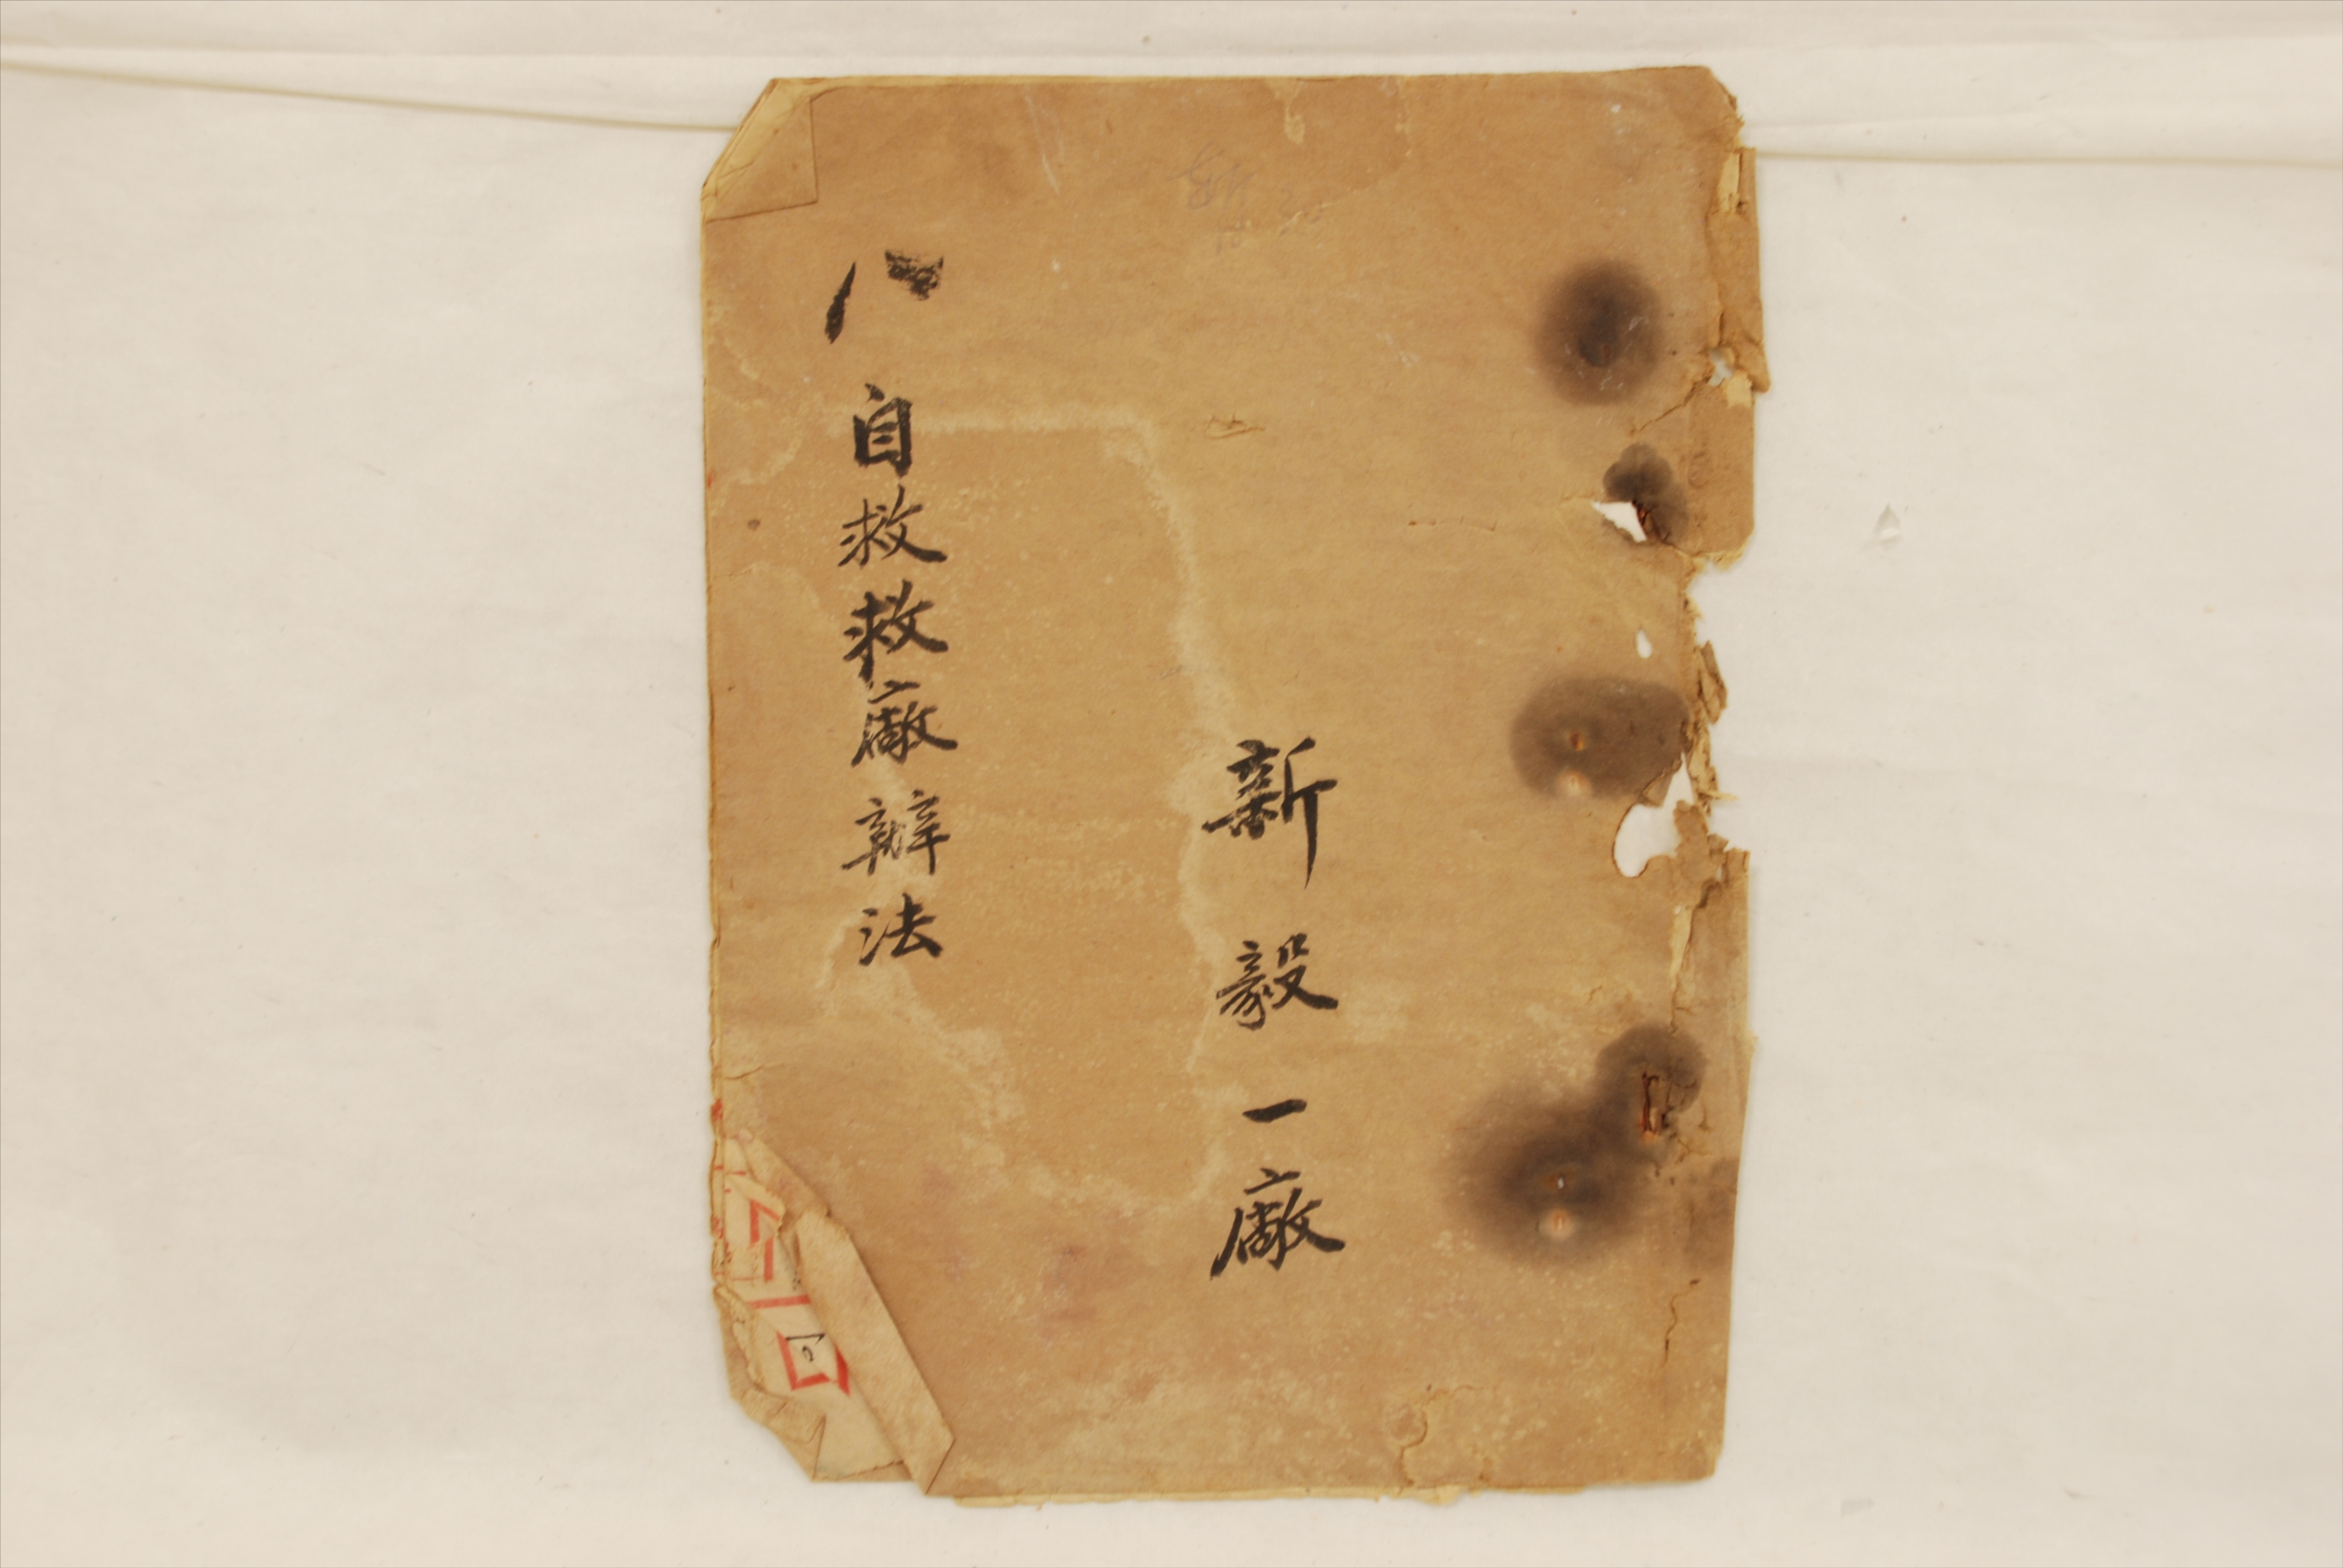 新毅一廠
八 自救救廠辦法